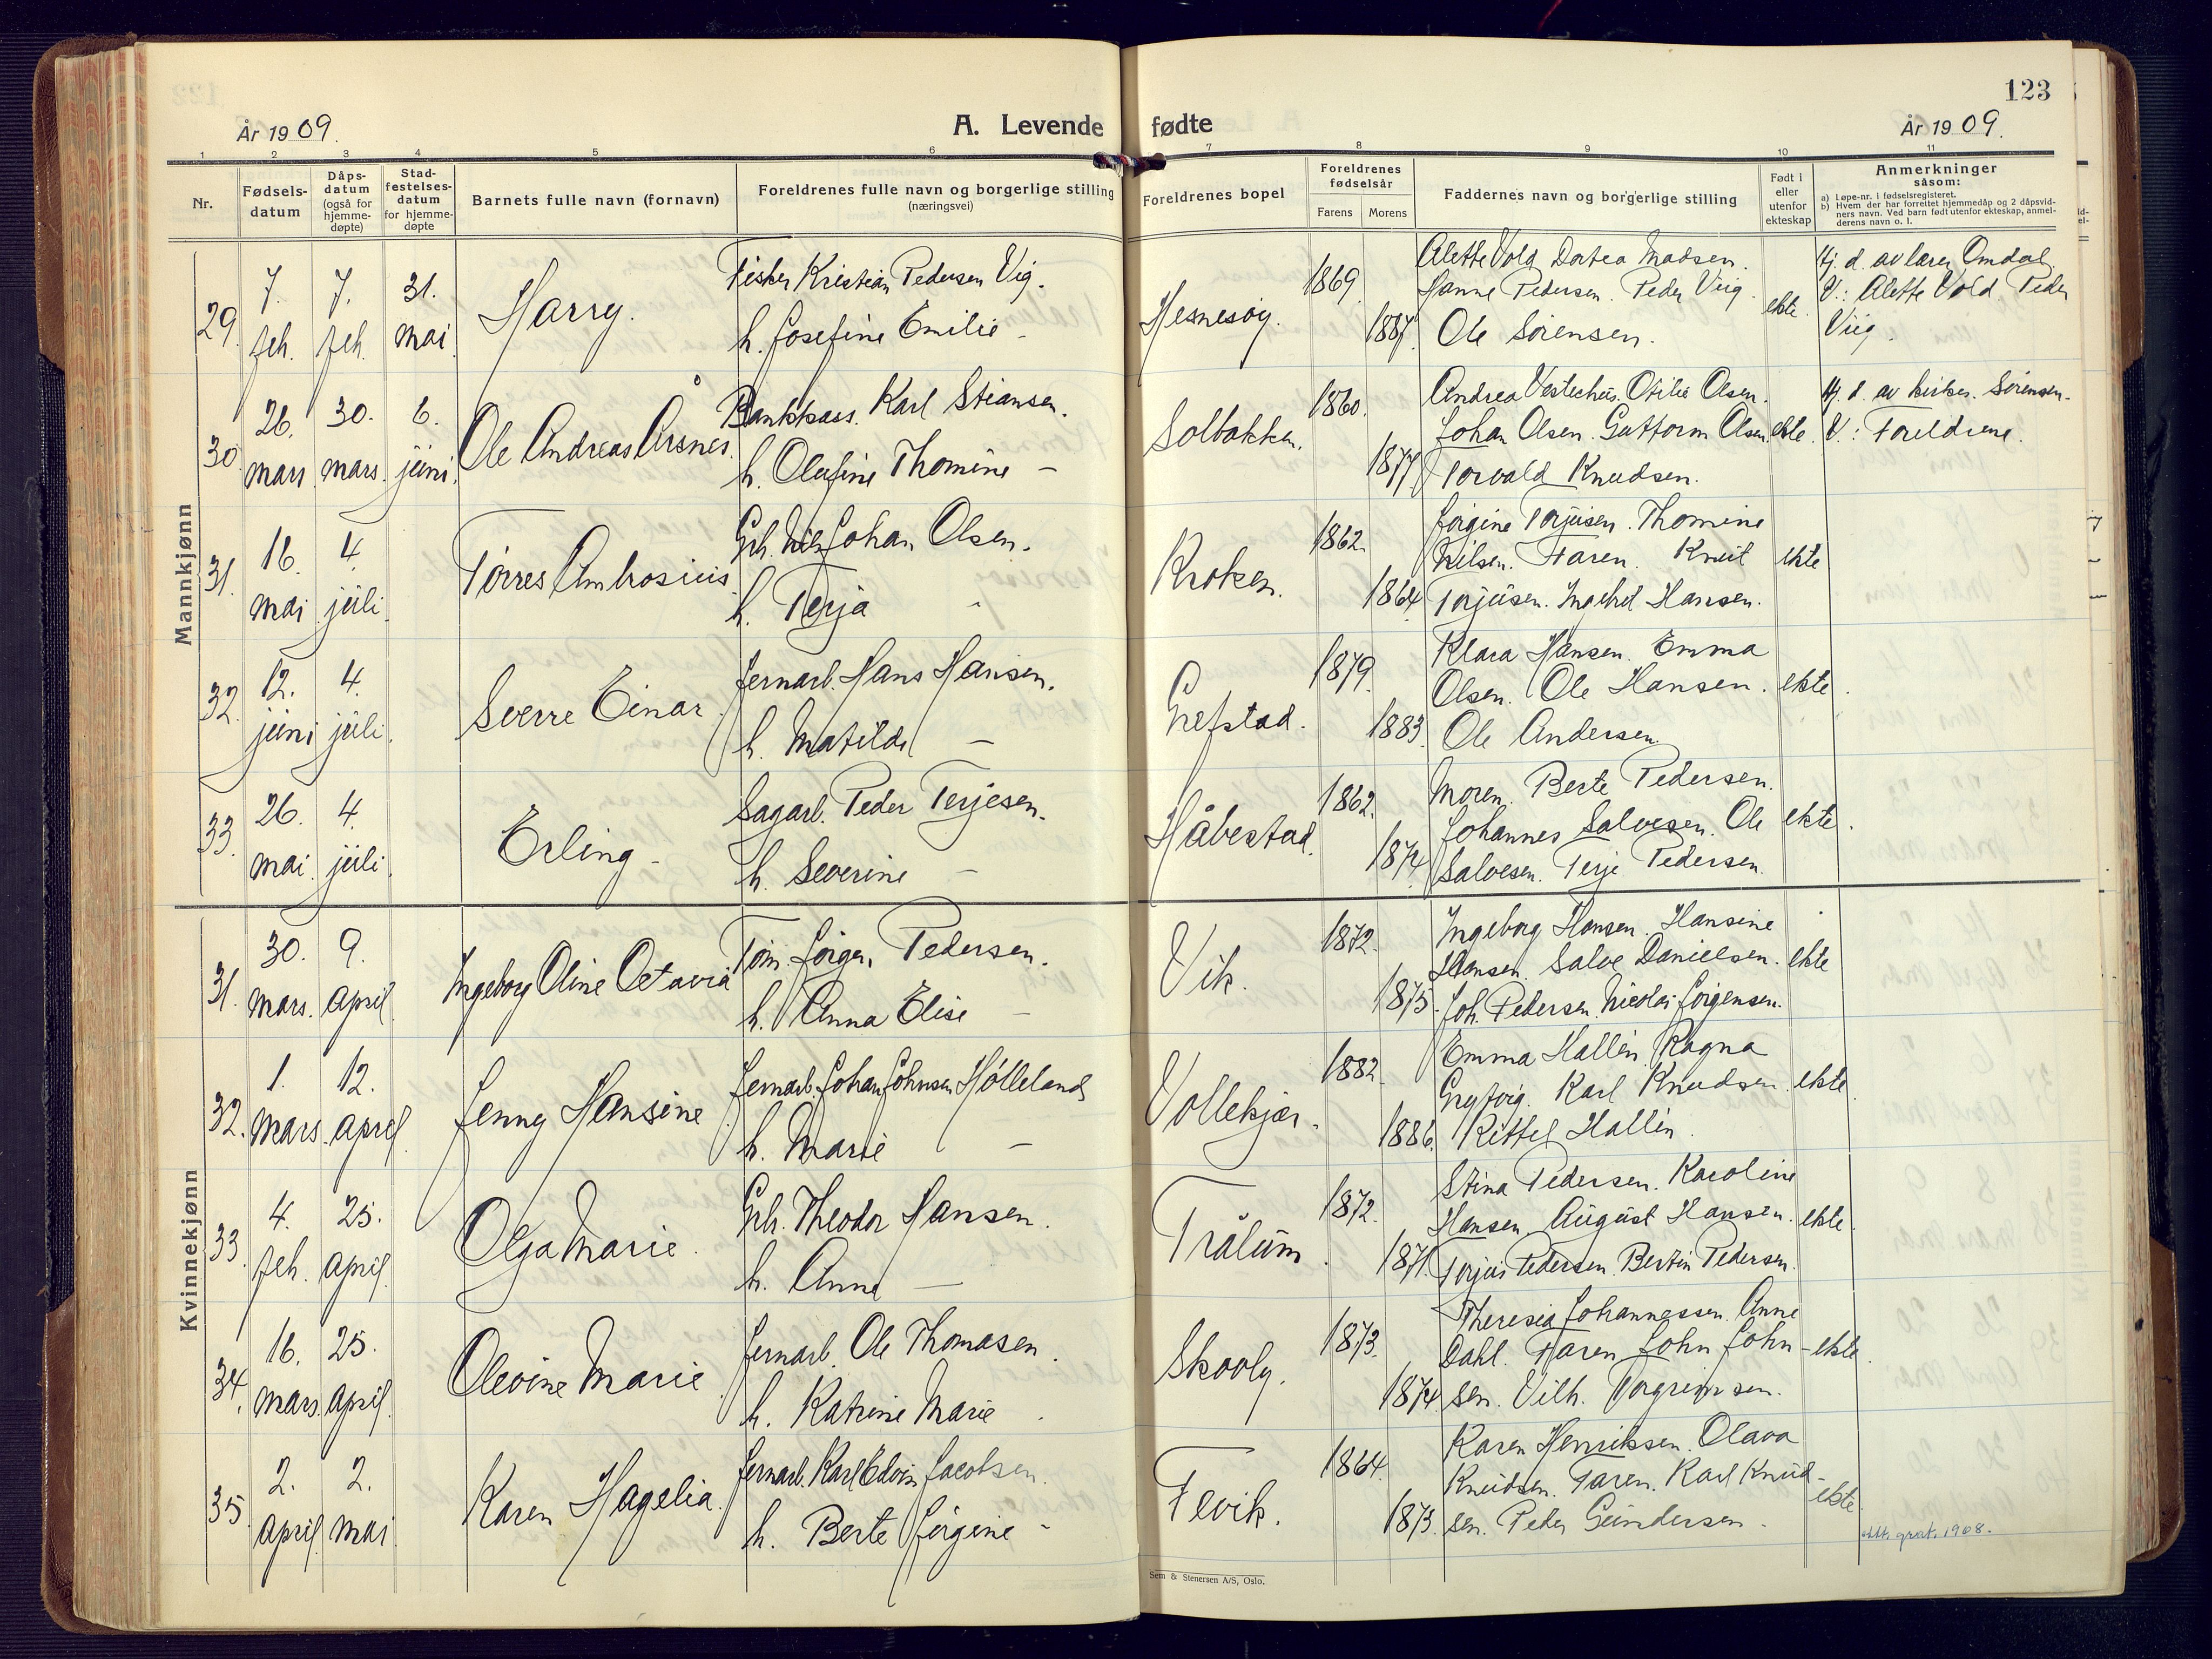 123
År 1909.
A. Levende fødte
År 1909.
1 2 3 4 5 6 7 8 9 10 11
Nr.
Fødsels-
datum
Dåps-
datum
(også for
hjemme-
døpte)
Stad-
festelses-
datum
for hjemme-
døpte
Barnets fulle navn (fornavn)
Foreldrenes fulle navn og borgerlige stilling
(næringsvei)
Foreldrenes bopel
Foreldrenes
fødselsår
Farens Morens
Faddernes navn og borgerlige stilling
Født i
eller
utenfor
ekteskap
Anmerkninger
såsom:
a) Løpe-nr. i fødselsregisteret.
b) Hvem der har forrettet hjemmedåp og 2 dåpsvid-
ners navn. Ved barn født utenfor ekteskap, anmel-
derens navn o. l.
Mannkjønn
29.
7.
feb.
7.
feb.
31.
mai
Harry.
Fisker Kristian Pedersen Vig.
h. Josefine Emilie -
Hesnesøy.
1869.
1887.
Alette Vold Dortea Madsen.
Hanne Pedersen. Peder Viig.
Ole Sørensen.
ekte.
Hj. d. av lærer Omdal
V.: Alette Vold. Peder
Viig.
30.
26.
mars
30.
mars.
6.
juni.
Ole Andreas Årsnes.
Bankkass. Karl Stiansen.
h. Olufine Thomine -
Solbakken.
1860.
1877.
Andrea Vestechus. Otilie Olsen.
Johan Olsen. Guttorm Olsen.
Torvald Knudsen.
ekte.
Hj. d. av kirkes. Sørensen.
V.: Foreldrene.
31.
16.
mai
4.
juli.
Tørres Ambrosius.
Grb. Nils Johan Olsen.
h. Terja -
Kroken.
1862.
1864
Jørgine Torjusen. Thomine
Nilsen. Faren. Knut
Torjusen. Ingebret Hansen.
ekte
32.
12.
juni
4.
juli.
Sverre Einar.
Jernarb. Hans Hansen.
h. Matilde -
Grefstad.
1879.
1883.
Klara Hansen. Emma
Olsen. Ole Hansen.
Ole Andersen.
ekte.
33.
26.
mai.
4.
juli.
Erling.
Sagarb. Peder Terjesen.
h. Severine -
Håbestad.
1862.
1874.
Moren. Berte Pedersen.
Johannes Salvesen. Ole
Salvesen. Terje Pedersen.
ekte.
Kvinnekjønn
31.
30.
mars.
9.
april.
Ingeborg Oline Octavia
Tøm. Jørgen Pedersen.
h. Anna Elise -
Vik.
1872.
1875.
Ingeborg Hansen. Hansine
Hansen. Salve Danielsen.
Joh. Pedersen. Nicolai Jørgensen.
ekte
32.
1.
mars.
12.
april.
Jenny Hansine.
Jernarb. Johan Johnsen Hølleland
h. Marie -
Vollekjær.
1882.
1886.
Emma Hallin. Ragna
Grytvig. Karl Knudsen.
Kittel Hallin.
ekte.
33.
4.
feb.
25.
april.
Olga Marie.
Grb. Theodor Hansen.
h. Anna -
Trålum.
1872.
1871.
Stina Pedersen. Karoline
Hansen. August Hansen.
Torjus Pedersen. Bertin Pedersen.
ekte.
34.
16.
mars.
25.
april.
Olevine Marie.
Jernarb. Ole Thomasen.
h. Katrine Marie.
Skovly.
1873.
1874.
Theresia Johannessen. Anne
Dahl. Faren. John John-
sen. Vilh. Torgrimsen.
ekte.
35.
2.
april
2.
mai
Karen Hagelia.
Jernarb. Karl Edvin Jacobsen.
h. Berte Jørgine -
Fevik.
1864.
1873.
Karen Henriksen. Olava
Knudsen. Faren. Karl Knud-
sen. Peder Gundersen.
ekte.
1908.
Sem & Stenersen A/S, Oslo.